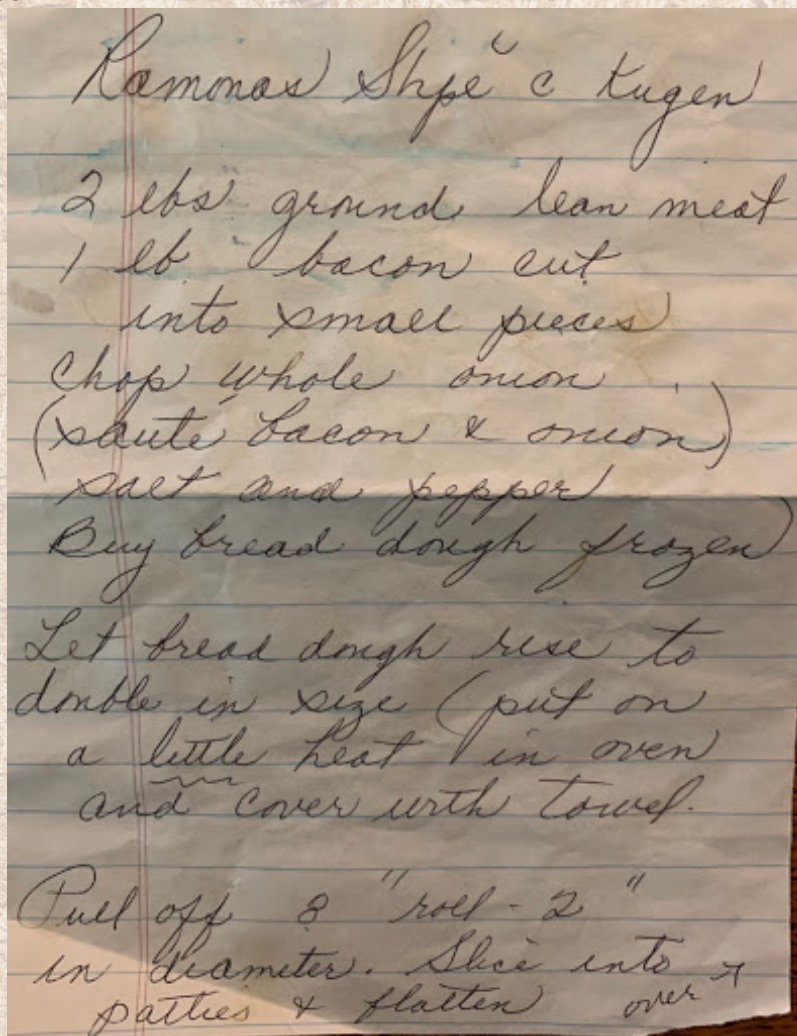 Ramonas Shpe˘c Kugen
2 lbs ground lean meat
1 lb bacon cut
into small pieces
Chop whole onion
(sauté bacon & onion)
salt and pepper
Buy bread dough frozen
Let bread dough rise to
double in size (put on
a little heat in oven
and cover with towel.
Pull off 8 "roll - 2"
in diameter. Slice into
patties & flatten over →